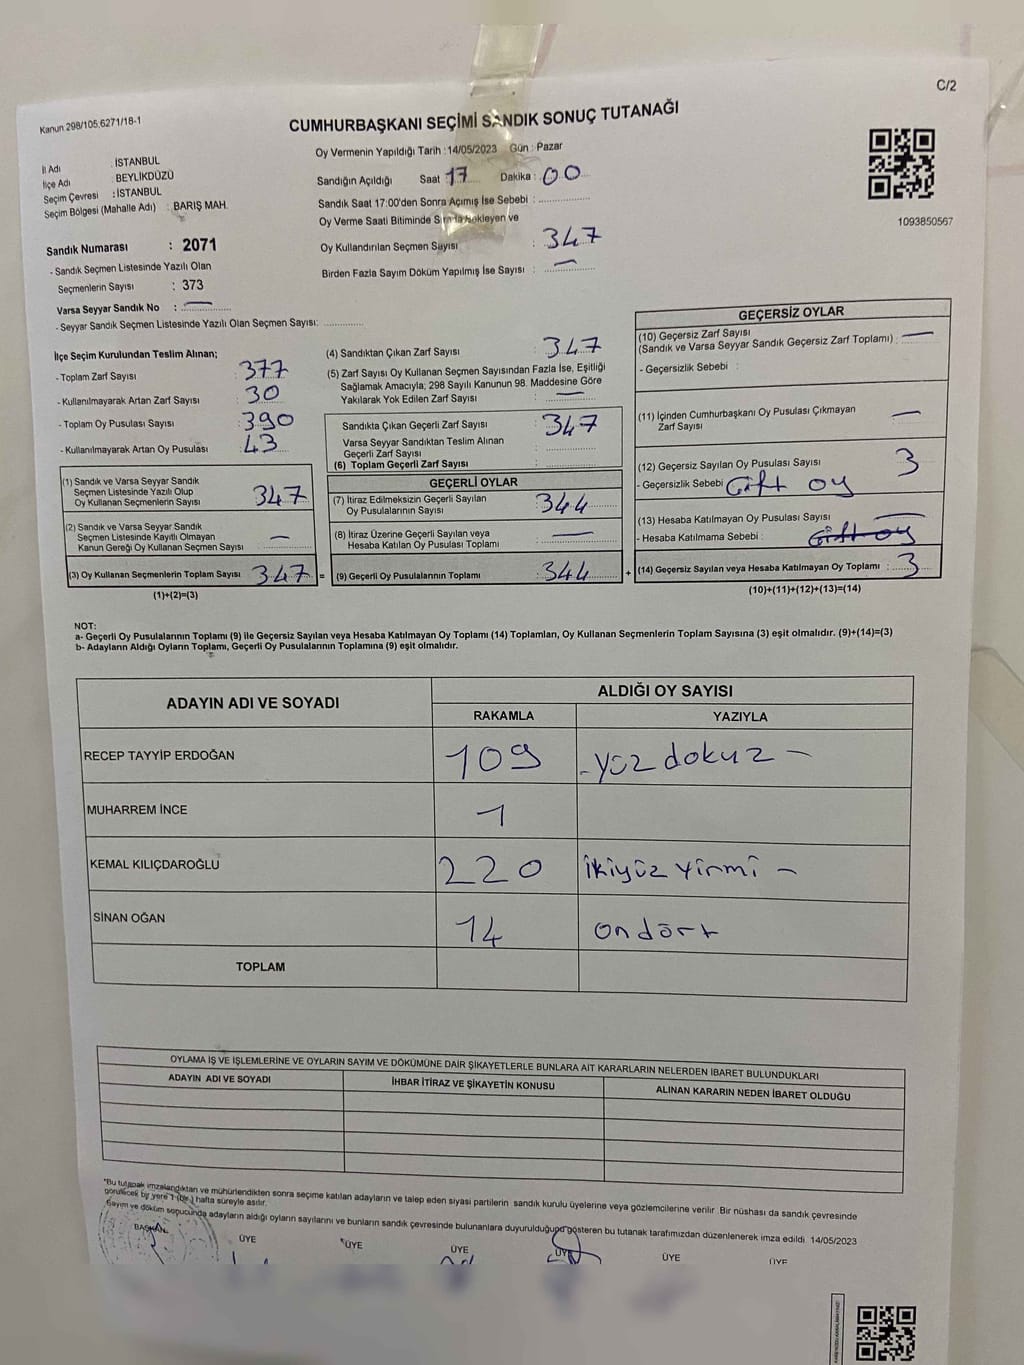 C/2
Kanun 298/105,6271/18-1
CUMHURBAŞKANI SEÇİMİ SANDIK SONUÇ TUTANAĞI
İl Adı : İSTANBUL
İlçe Adı : BEYLİKDÜZÜ
Seçim Çevresi : İSTANBUL
Seçim Bölgesi (Mahalle Adı) : BARIŞ MAH.
Sandık Numarası : 2071
- Sandık Seçmen Listesinde Yazılı Olan
Seçmenlerin Sayısı : 373
Varsa Seyyar Sandık No : —
- Seyyar Sandık Seçmen Listesinde Yazılı Olan Seçmen Sayısı:
Oy Vermenin Yapıldığı Tarih : 14/05/2023 Gün : Pazar
Sandığın Açıldığı Saat 17 Dakika : 00
Sandık Saat 17:00'den Sonra Açımış İse Sebebi :
Oy Verme Saati Bitiminde Sırada Bekleyen ve
Oy Kullandırılan Seçmen Sayısı : 347
Birden Fazla Sayım Döküm Yapılmış İse Sayısı : —
1093850567
İlçe Seçim Kurulundan Teslim Alınan;
- Toplam Zarf Sayısı : 377
- Kullanılmayarak Artan Zarf Sayısı : 30
- Toplam Oy Pusulası Sayısı : 390
- Kullanılmayarak Artan Oy Pusulası : 43
(1) Sandık ve Varsa Seyyar Sandık
Seçmen Listesinde Yazılı Olup
Oy Kullanan Seçmenlerin Sayısı 347
(2) Sandık ve Varsa Seyyar Sandık
Seçmen Listesinde Kayıtlı Olmayan
Kanun Gereği Oy Kullanan Seçmen Sayısı —
(3) Oy Kullanan Seçmenlerin Toplam Sayısı 347 =
(1)+(2)=(3)
(4) Sandıktan Çıkan Zarf Sayısı : 347
(5) Zarf Sayısı Oy Kullanan Seçmen Sayısından Fazla İse, Eşitliği
Sağlamak Amacıyla; 298 Sayılı Kanunun 98. Maddesine Göre
Yakılarak Yok Edilen Zarf Sayısı : —
Sandıkta Çıkan Geçerli Zarf Sayısı : 347
Varsa Seyyar Sandıktan Teslim Alınan
Geçerli Zarf Sayısı :
(6) Toplam Geçerli Zarf Sayısı :
GEÇERLİ OYLAR
(7) İtiraz Edilmeksizin Geçerli Sayılan
Oy Pusulalarının Sayısı : 344
(8) İtiraz Üzerine Geçerli Sayılan veya
Hesaba Katılan Oy Pusulası Toplamı : —
(9) Geçerli Oy Pusulalarının Toplamı : 344 +
GEÇERSİZ OYLAR
(10) Geçersiz Zarf Sayısı
(Sandık ve Varsa Seyyar Sandık Geçersiz Zarf Toplamı) : —
- Geçersizlik Sebebi :
(11) İçinden Cumhurbaşkanı Oy Pusulası Çıkmayan
Zarf Sayısı —
(12) Geçersiz Sayılan Oy Pusulası Sayısı 3
- Geçersizlik Sebebi : Çift oy
(13) Hesaba Katılmayan Oy Pusulası Sayısı —
- Hesaba Katılmama Sebebi : Çift oy
(14) Geçersiz Sayılan veya Hesaba Katılmayan Oy Toplamı : 3
(10)+(11)+(12)+(13)=(14)
NOT:
a- Geçerli Oy Pusulalarının Toplamı (9) ile Geçersiz Sayılan veya Hesaba Katılmayan Oy Toplamı (14) Toplamları, Oy Kullanan Seçmenlerin Toplam Sayısına (3) eşit olmalıdır. (9)+(14)=(3)
b- Adayların Aldığı Oyların Toplamı, Geçerli Oy Pusulalarının Toplamına (9) eşit olmalıdır.
ADAYIN ADI VE SOYADI ALDIĞI OY SAYISI
RAKAMLA YAZIYLA
RECEP TAYYİP ERDOĞAN 109 - yüz dokuz -
MUHARREM İNCE 1
KEMAL KILIÇDAROĞLU 220 ikiyüz yirmi -
SİNAN OĞAN 14 on dört
TOPLAM
OYLAMA İŞ VE İŞLEMLERİNE VE OYLARIN SAYIM VE DÖKÜMÜNE DAİR ŞİKAYETLERLE BUNLARA AİT KARARLARIN NELERDEN İBARET BULUNDUKLARI
ADAYIN ADI VE SOYADI İHBAR İTİRAZ VE ŞİKAYETİN KONUSU ALINAN KARARIN NEDEN İBARET OLDUĞU
*Bu tutanak imzalandıktan ve mühürlendikten sonra seçime katılan adayların ve talep eden siyasi partilerin sandık kurulu üyelerine veya gözlemcilerine verilir. Bir nüshası da sandık çevresinde
görülecek bir yere 1 (bir) hafta süreyle asılır.
Sayım ve döküm sonucunda adayların aldığı oyların sayılarını ve bunların sandık çevresinde bulunanlara duyurulduğunu gösteren bu tutanak tarafımızdan düzenlenerek imza edildi. 14/05/2023
BAŞKAN ÜYE ÜYE ÜYE ÜYE ÜYE ÜYE